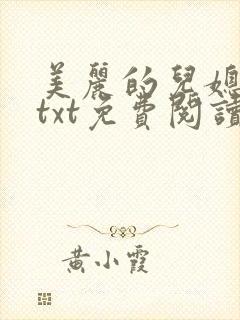 美麗的兒媳
txt免費閱讀
黃小霞